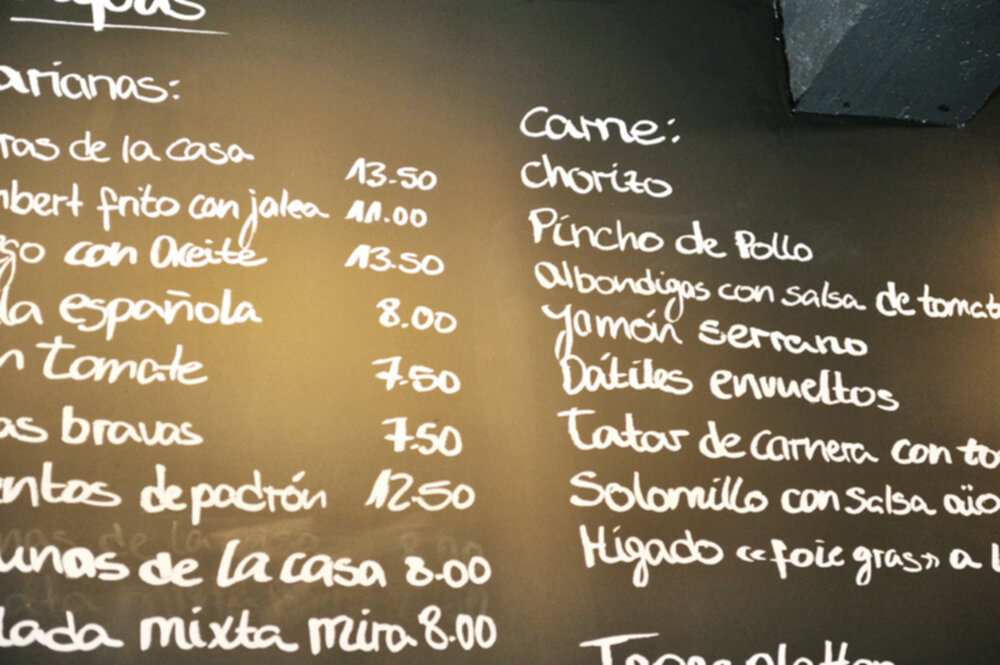 arianas:
ras de la casa 13.50
mbert frito con jalea 11.00
con Aceite 13.50
la española 8.00
n tomate 7.50
as bravas 7.50
entos de padrón 12.50
unas de la casa 8.00
lada mixta mira 8.00
Carne:
Chorizo
Pincho de Pollo
Albondigas con salsa de tomat
Yamón serrano
Dátiles envueltos
Tatar de carnera con to
Solomillo con salsa aïo
Higado «foie gras» a l